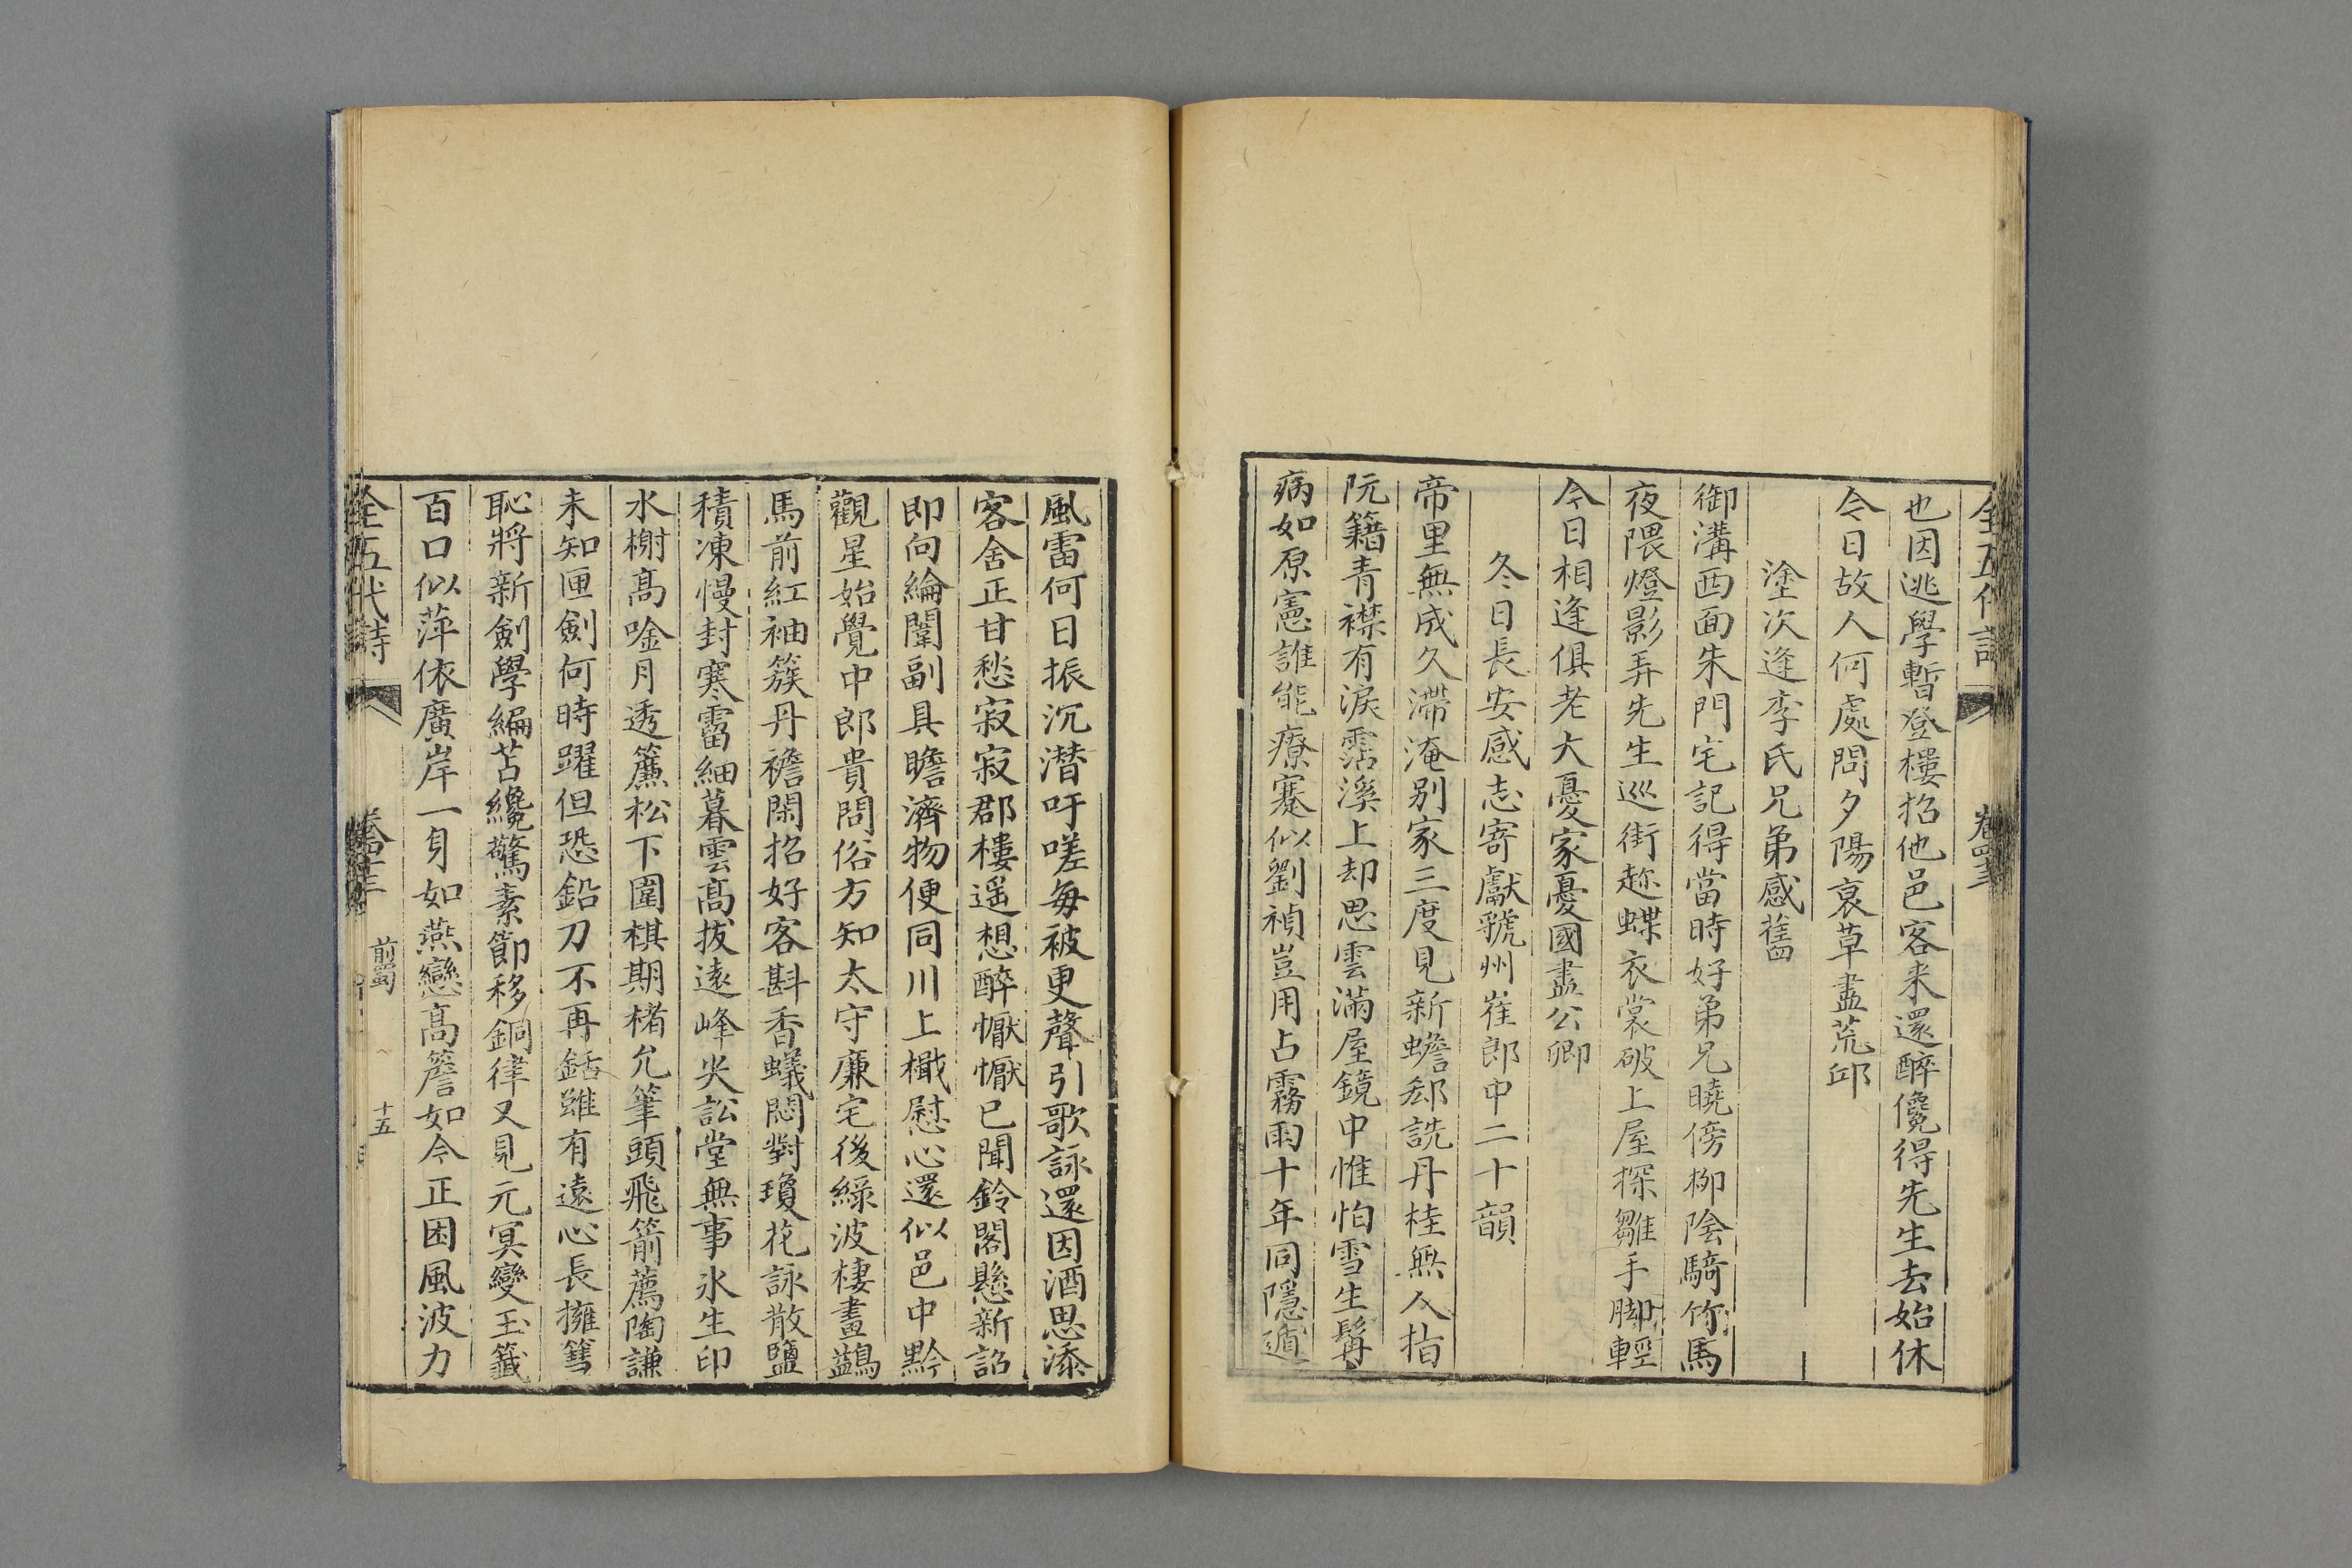 全五代詩
也因逃學暫登樓招他邑客来還醉儳得先生去始休
今日故人何處問夕陽衰草盡荒邱
塗次逢李氏兄弟感舊
御溝西面朱門宅記得當時好弟兄曉傍柳陰騎竹馬
夜隈燈影弄先生巡街趂蝶衣裳破上屋探雛手脚輕
今日相逢俱老大憂家憂國盡公卿
冬日長安感志寄獻虢州崔郎中二十韻
帝里無成久滯淹别家三度見新蟾郄詵丹桂無人指
阮籍青襟有淚霑溪上却思雲滿屋鏡中惟怕雪生髯
病如原憲誰能療蹇似劉禎豈用占霧雨十年同隱遁
風雷何日振沉潛吁嗟每被更聲引歌詠還因酒思添
客舍正甘愁寂寂郡樓遥想醉懨懨已聞鈴閣懸新詔
即向綸闈副具瞻濟物便同川上檝慰心還似邑中黔
觀星始覺中郎貴問俗方知太守廉宅後綠波棲畫鷁
馬前紅袖簇丹襜閑招好客斟香蟻悶對瓊花詠散鹽
積凍慢封寒霤細暮雲髙拔遠峰尖訟堂無事氷生印
水榭髙唫月透簾松下圍棋期褚允筆頭飛箭薦陶謙
未知匣劍何時躍但恐鉛刀不再銛雖有遠心長擁篲
恥將新劍學編苫纔驚素節移銅律又見元冥變玉籤
百口似萍依廣岸一身如燕戀髙簷如今正困風波力
全五代詩
前蜀
十五